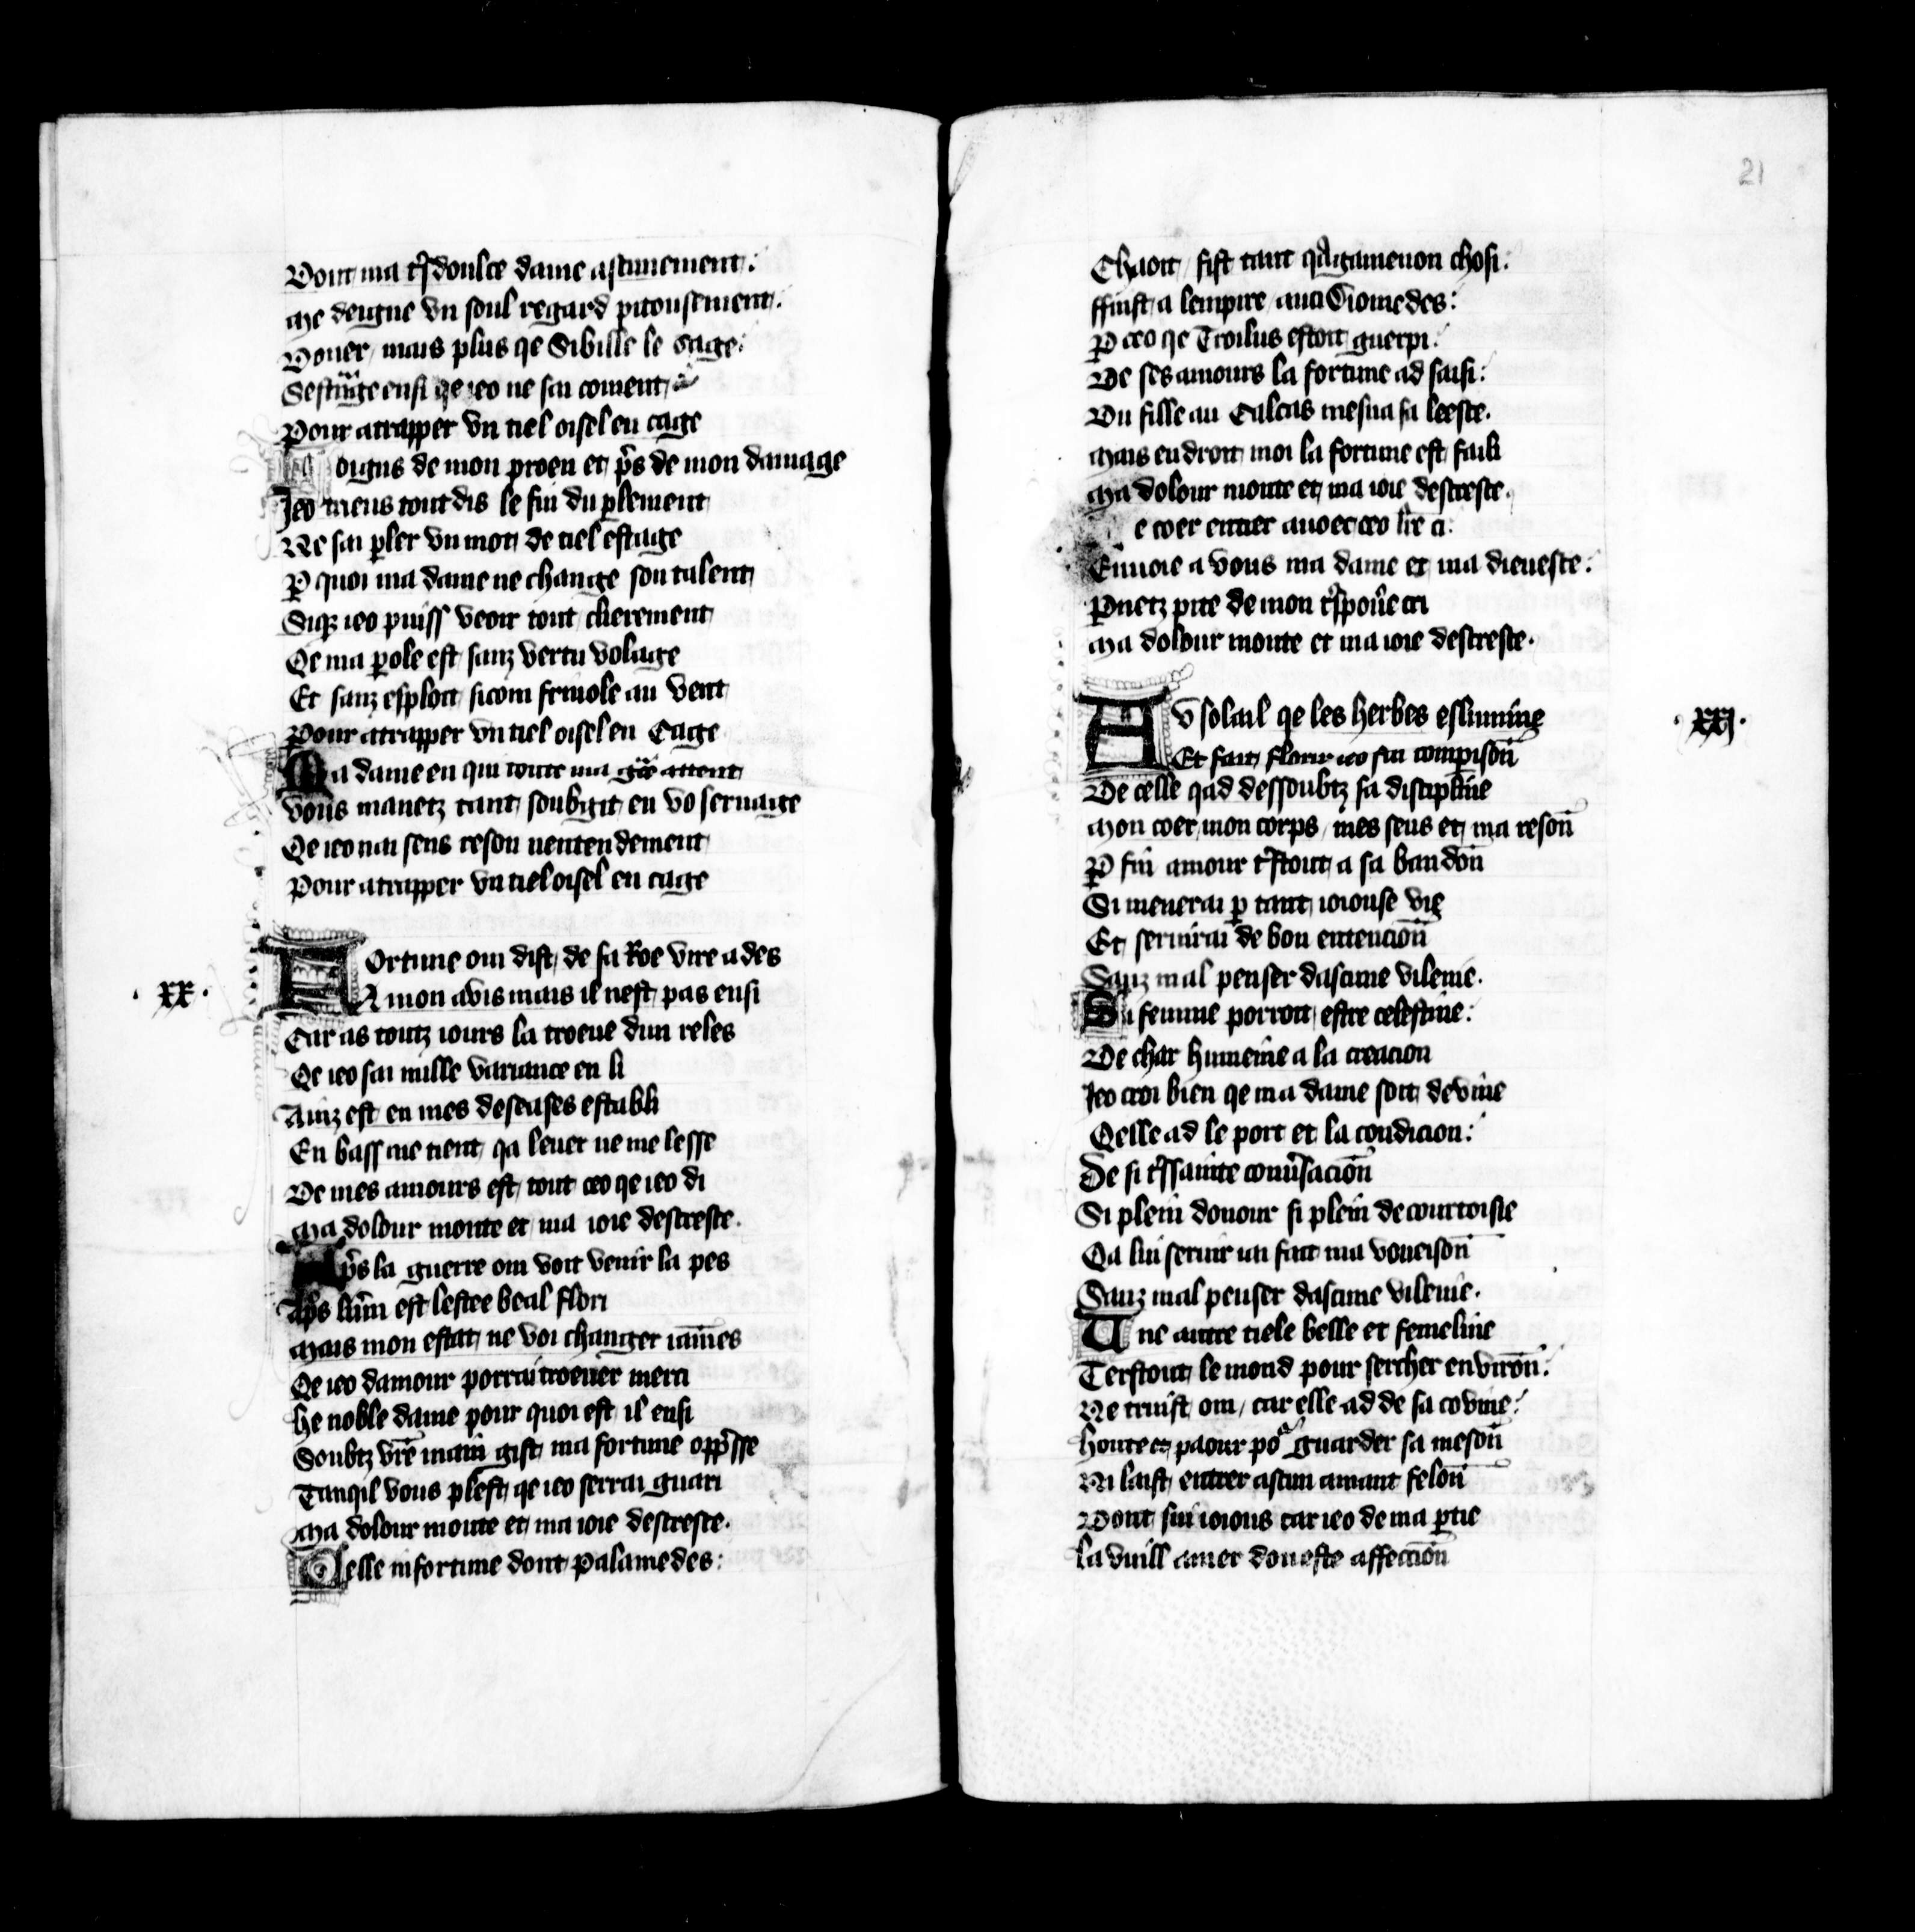 Dont ma tresdoulce dame ascunement:
Me deigne vn soul regard pitousement:
Doner, mais plus qe Sibille le sage:
Sestrange ensi qe ieo ne sai coment
Pour atrapper vn tiel oisel en cage
Loigns de mon proen et pres de mon damage
Jeo trieus tout dis le fin du parlement
Ne sai parler vn mot de tiel estage
Par quoi ma dame ne change son talent
Siqe ieo puiss veoir tout clierement
Qe ma parole est sanz vertu volage
Et sanz esploit sicom friuole au vent
Pour atrapper vn tiel oisel en Cage
Ma dame en qui toute ma grace attent
Vous manetz tant soubgit en vo seruage
Qe ieo nai sens reson nentendement
Pour atrapper vn tiel oisel en cage
· xx ·
Fortune om dist de sa Roe vire ades
A mon avis mais il nest pas ensi
Car as toutz iours la troeue dun reles
Qe ieo sai nulle variance en li
Ainz est en mes deseases establi
En bass me tient qa leuer ne me lesse
De mes amours est tout ceo qe ieo di
Ma dolour monte et ma ioie descresce.
Apres la guerre om voit venir la pes
Apres luern est lestee beal flori
Mais mon estat ne voi changer iammes
Qe ieo damour porrai troeuer merci
He noble dame pour quoi est il ensi
Soubtz vostre main gist ma fortune oppresse
Tanqil vous plest qe ieo serrai guari
Ma dolour monte et ma ioie descresce.
Celle infortune dont Palamedes:
21
Chaoit, fist tant qAgamenon chosi:
ffuist a lempire, auci Diomedes:
Par ceo qe Troilus estoit guerpi:
De ses amours la fortune ad saisi:
Du fille au Calcas mesna sa leesce.
Mais endroit moi la fortune est faili
Ma dolour monte et ma ioie descresce.
e coer entier auoec ceo lettre ci:
Enuoie a vous ma dame et ma dieuesce:
Prenetz pite de mon trespouere cri
Ma dolour monte et ma ioie descresce.
· xxj ·
Av solail qe les herbes eslumine
Et fait florir ieo fai comparison
De celle qad dessoubtz sa discipline
Mon coer, mon corps, mes sens et ma reson
Par fin amour trestout a sa bandon
Si menerai par tant ioiouse vie
Et seruirai de bon entencion
Sanz mal penser dascune vilenie.
Si femme porroit estre celestine:
De char humeine a la creacion
Jeo croi bien qe ma dame soit deuine
Qelle ad le port et la condicion:
De si tressainte conuersacion
Si plein donour si plein de courtoisie
Qa lui seruir iai fait ma voueison
Sanz mal penser dascune vilenie.
Une autre tiele belle et femeline
Terstout le mond pour sercher environ:
Ne truist om, car elle ad de sa covine:
Honte et paour pour guarder sa meson
Ni laist entrer ascun amant felon
Dont sui ioious car ieo de ma partie
La vuill amer doneste affeccion